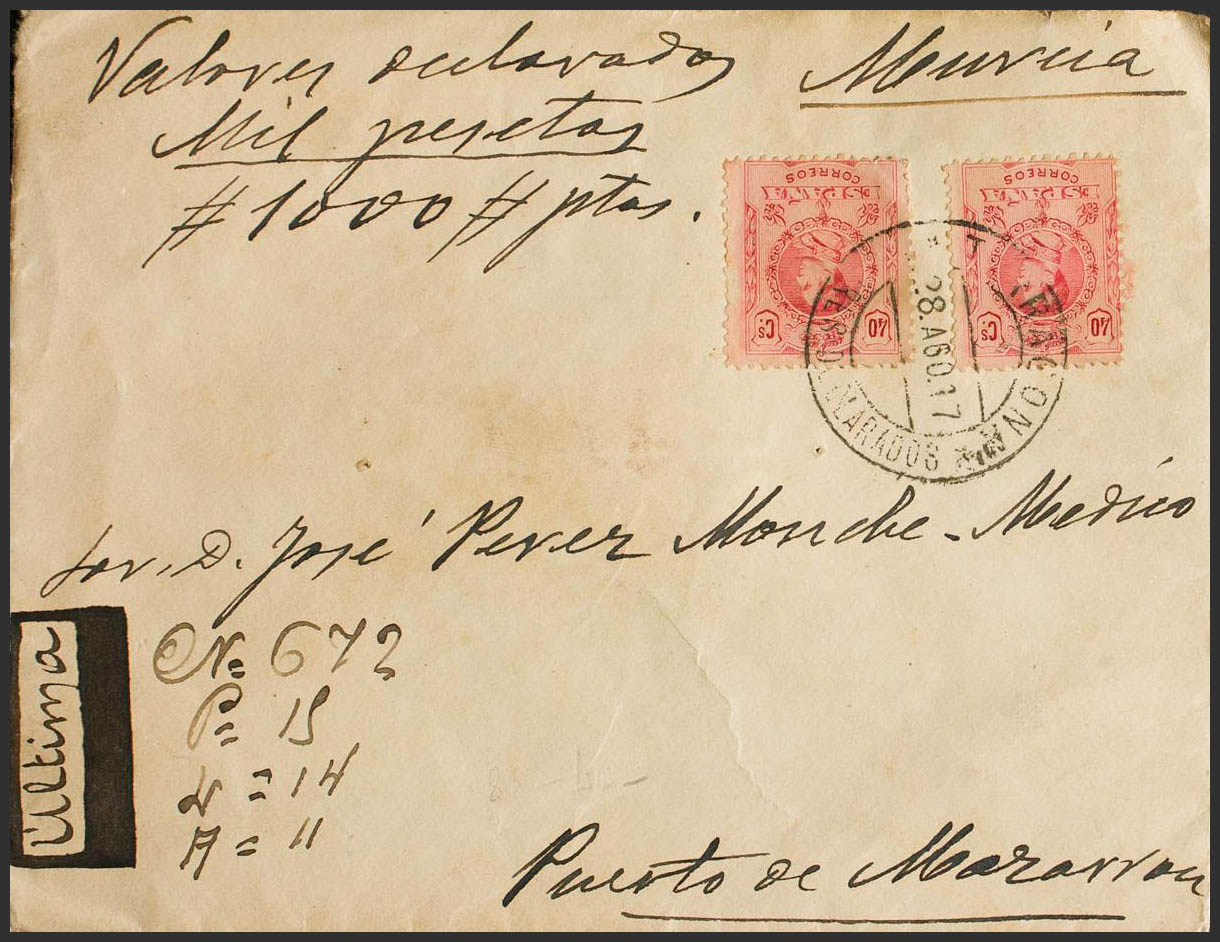 Valores declarados
Murcia
Mil pesetas
# 1000 # ptas.
CORREOS
ESPAÑA
40 Cs
CORREOS
ESPAÑA
40 Cs
TARRAGONA
28.AGO.17
DECLARADOS
Sor. D. José Perez Monche - Medico
Última
Nº= 672
P= 15
L = 14
A = 11
Puerto de Mazarron